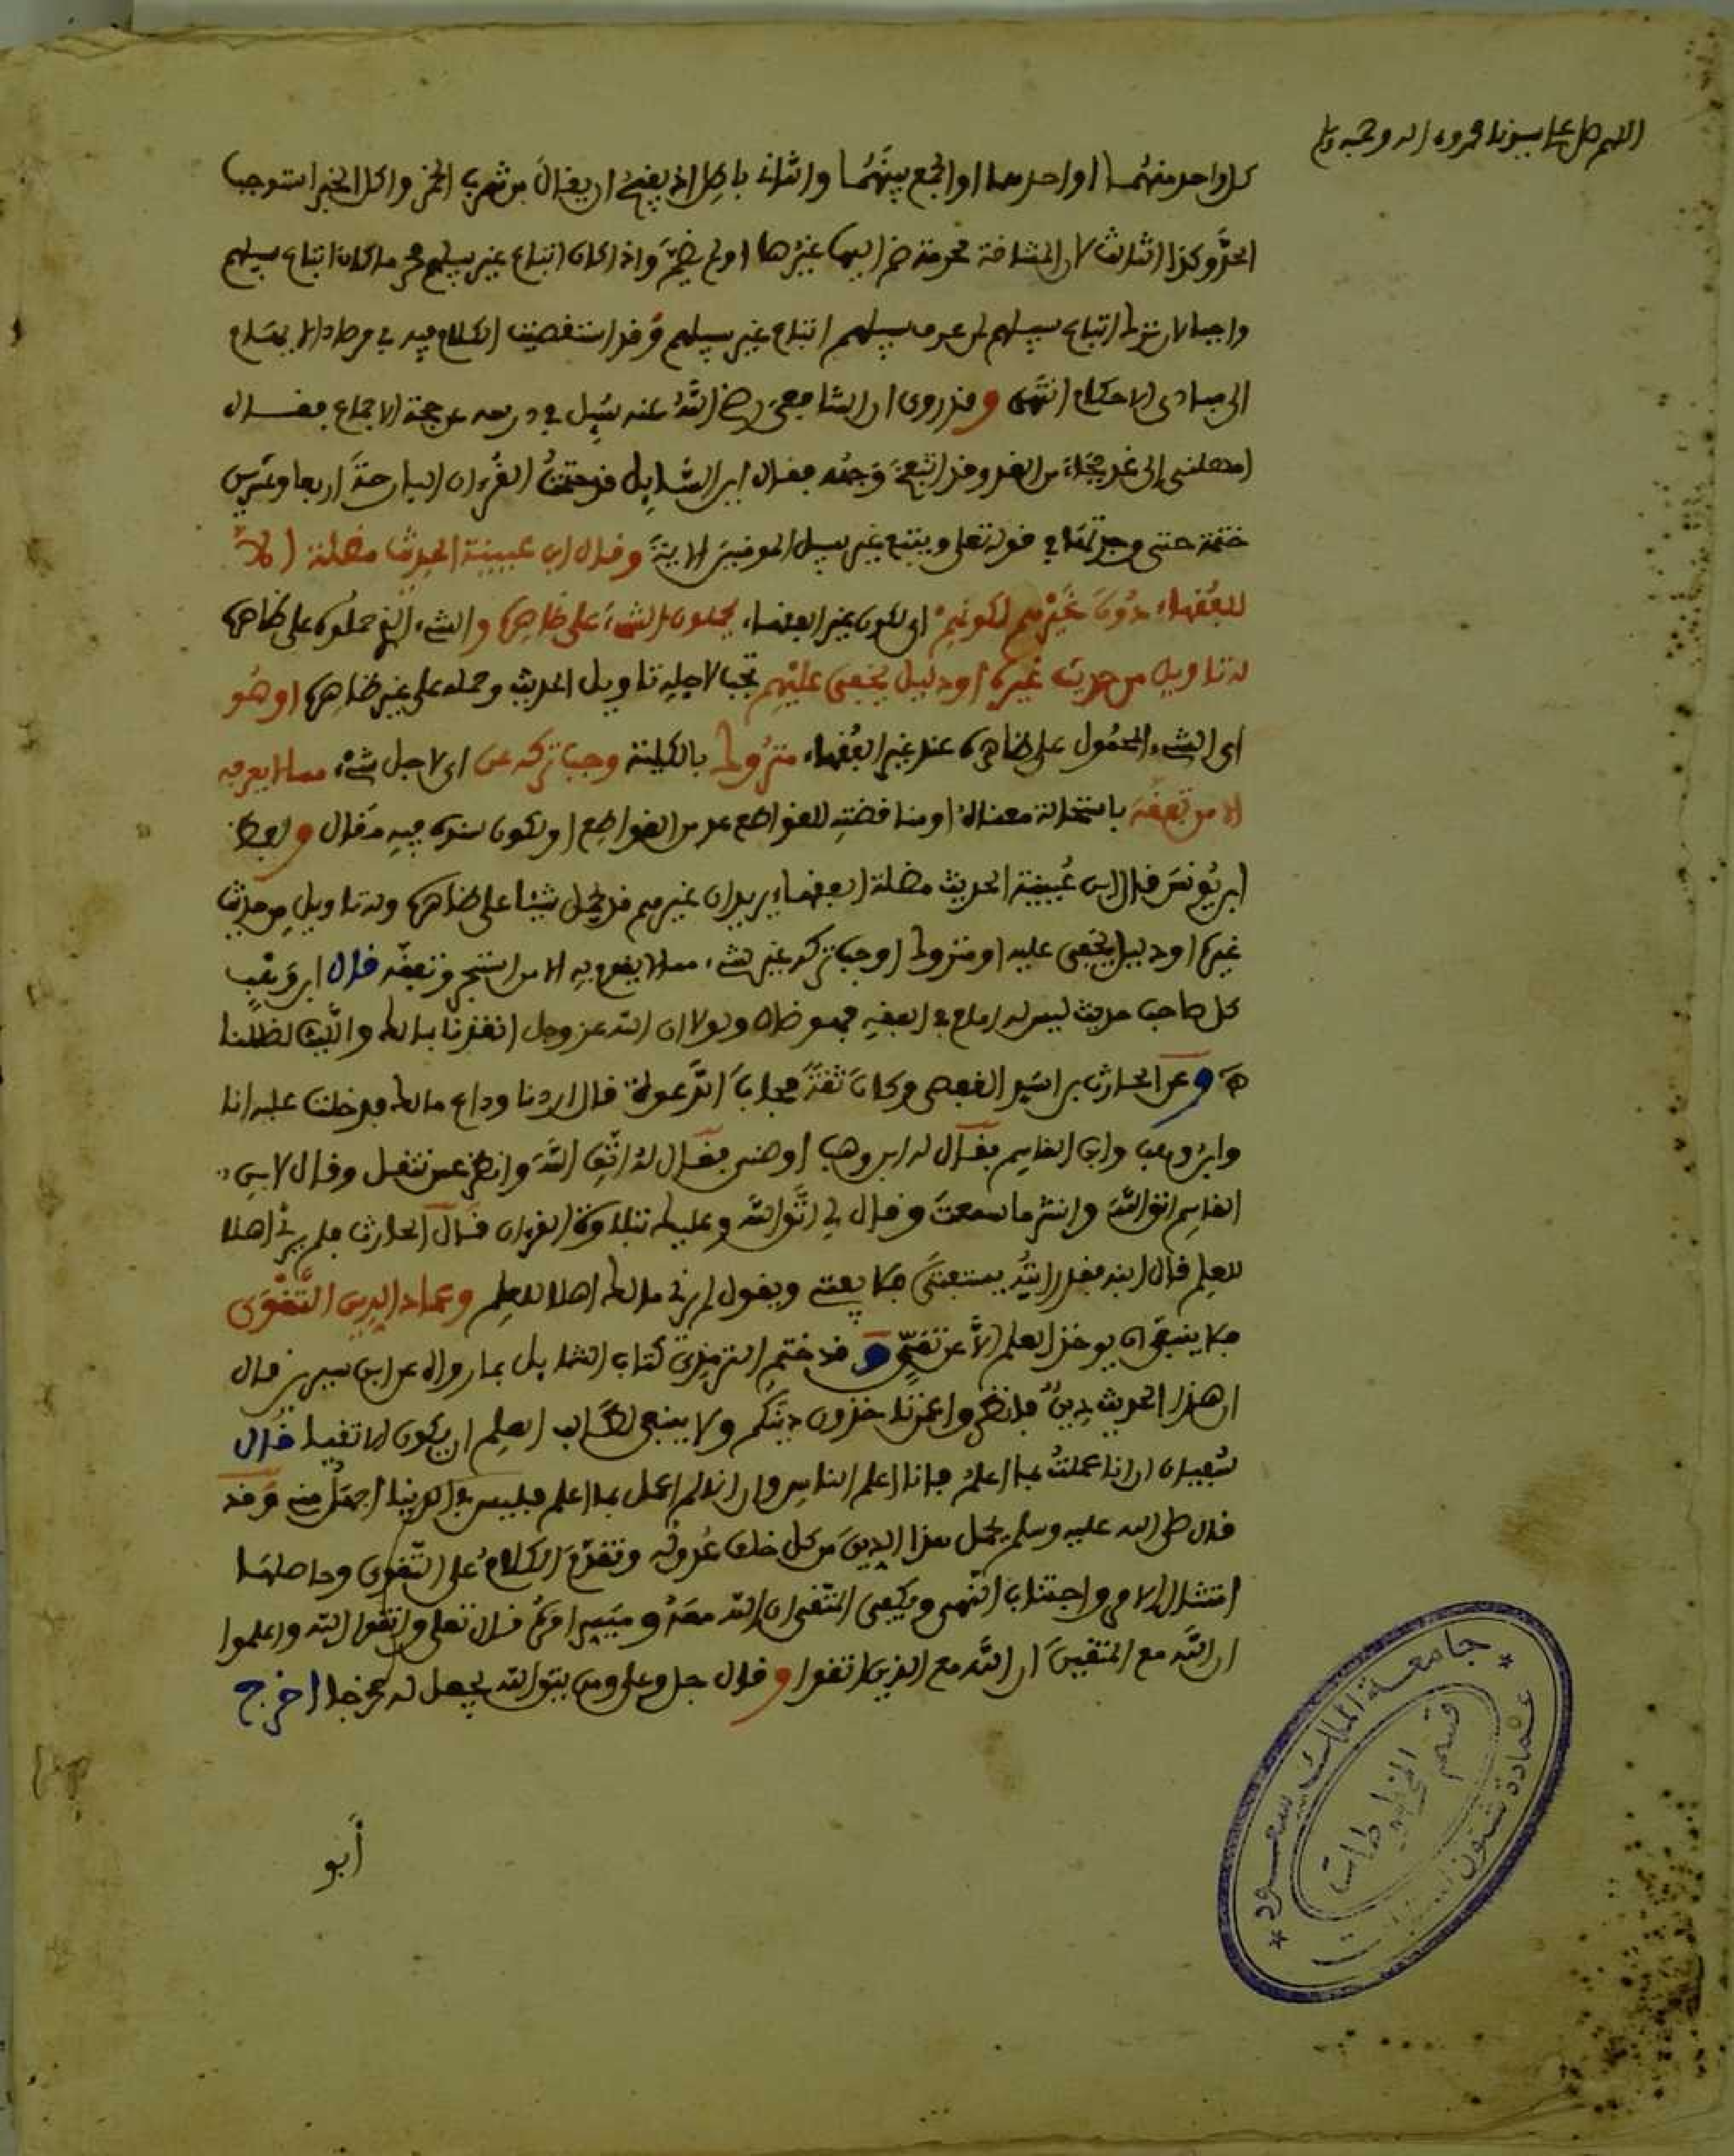 اللهم صل على سيدنا محمد وءاله وصحبه وسلم
كل واحد منهما او احدهما او الجمع بينهما والثانى باطل اذ يقبح ان يقال من شرب الخمر واكل الخبز استوجب
الحد وكذا الثالث لان المشاقة محرمة ضم اليها غيرها او لم يضم واذا كان اتباع غير سبيلهم محرما كان اتباع سبيلهم
واجبا لان ترك اتباع سبيلهم لمن عرف سبيلهم اتباع غير سبيلهم وقد استقصيت الكلام فيه فى مرصاد الافهام
الى مبادى الاحكام انتهى وقد روى ان الشافعى رضى الله عنه سئل فى عن حجة الاجماع فقال
امهلنى الى غد فجاء من الغد وقد فقال اين السائل قد ختمت القرءان البارحة اربعا وعشرين
ختمة حتى وجدتها فى قوله تعلى ويتبع غير سبيل المومنين الاية وقال ابن عيينة الحديث مضلة الا
للفقهاء دون غيرهم لكونهم اى لكون غير الفقهاء يحملون الشىء على ظاهره والشىء الذى حملوه على ظاهره
له تاويل من حديث غيره او دليل يخفى عليهم يجب لاجله تاويل الحديث وحمله على غير ظاهره او هو
اى الشىء المحمول على ظاهره عند غير الفقهاء متروك بالكلية وجب تركه عن اى لاجل شىء مما لا يعرفه
الا من تفقه باستحالة معناه او مناقضته للقواطع من القواطع او لكون سنده فيه مقال ولفظ
ابن يونس قال ابن عيينة الحديث مضلة الا لفقهاء يريد ان غيرهم قد يحمل شيئا على ظاهره وله تاويل من حديث
غيره او دليل يخفى عليه او متروك اوجب تركه غير شىء مما لا يقوم به الا من استبحر وتفقه قال ابن وهب
كل صاحب حديث ليس له امام فى الفقه فهو ضال ولولا ان الله عز وجل انقذنا بمالك والليث لضللنا
وعن الحارث بن اسد القفصى وكان ثقة مجاب الدعوة قال اردنا وداع مالك فدخلت عليه انا
وابن وهب وابن القاسم فقال له ابن وهب اوصنى فقال له اتق الله وانظر عمن تنقل وقال لابن
القاسم اتق الله وانشر ما سمعت وقال لى اتق الله وعليك بتلاوة القرءان قال الحارث فلم يرنى اهلا
للعلم قال ابنه فقد رايته يستفتى فلا يفتى ويقول لم يرنى مالك اهلا للعلم وعماد الدين التقوى
فلا ينبغى ان يوخذ العلم الا عن تقى وقد ختم الترمذى كتاب الشمايل بما رواه عن ابن سيرين قال
ان هذا الحديث دين فانظروا عمن تاخذون دينكم ولا ينبغى لطالب العلم ان يكون الا تقيا قال
سفيان ان انا عملت بما اعلم فانا اعلم الناس وان انا لم اعمل بما اعلم فليس فى الدنيا اجهل منى وقد
قال صلى الله عليه وسلم يحمل هذا الدين من كل خلف عدوله وتقدم الكلام على التقوى وحاصلها
امتثال الامر واجتناب النهى ويكفى المتقى ان الله معه وميسر امره قال تعلى واتقوا الله واعلموا
ان الله مع المتقين ان الله مع الذين اتقوا وقال جل وعلى ومن يتق الله يجعل له مخرجا اخرج
أبو
جامعة الملك سعود
قسم المخطوطات
عمادة شئون